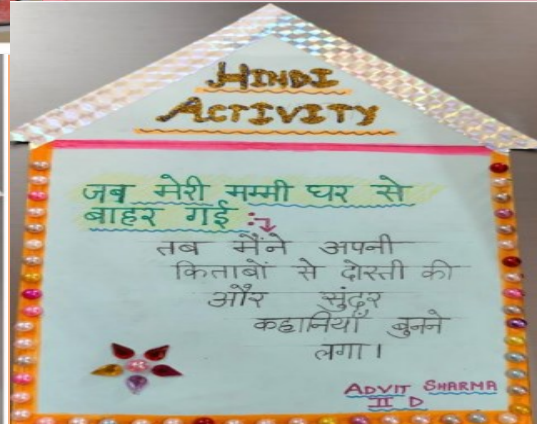 HINDI
ACTIVITY
जब मेरी मम्मी घर से
बाहर गई :→
तब मैंने अपनी
किताबों से दोस्ती की
और सुंदर
कहानियाँ बुनने
लगा।
ADVIT SHARMA
II D